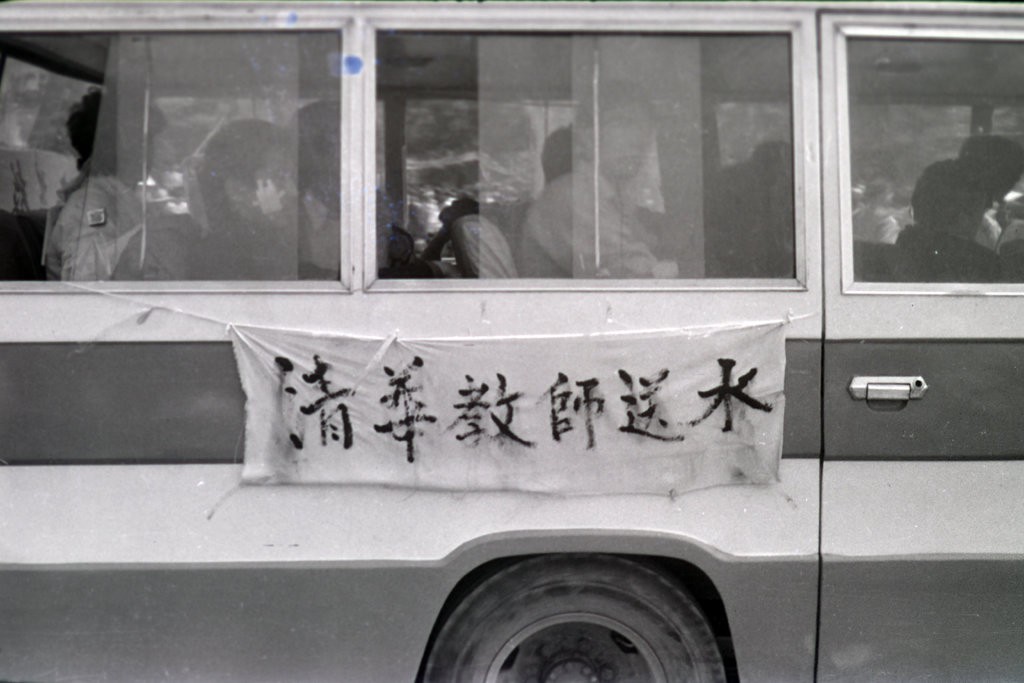 清華教師送水